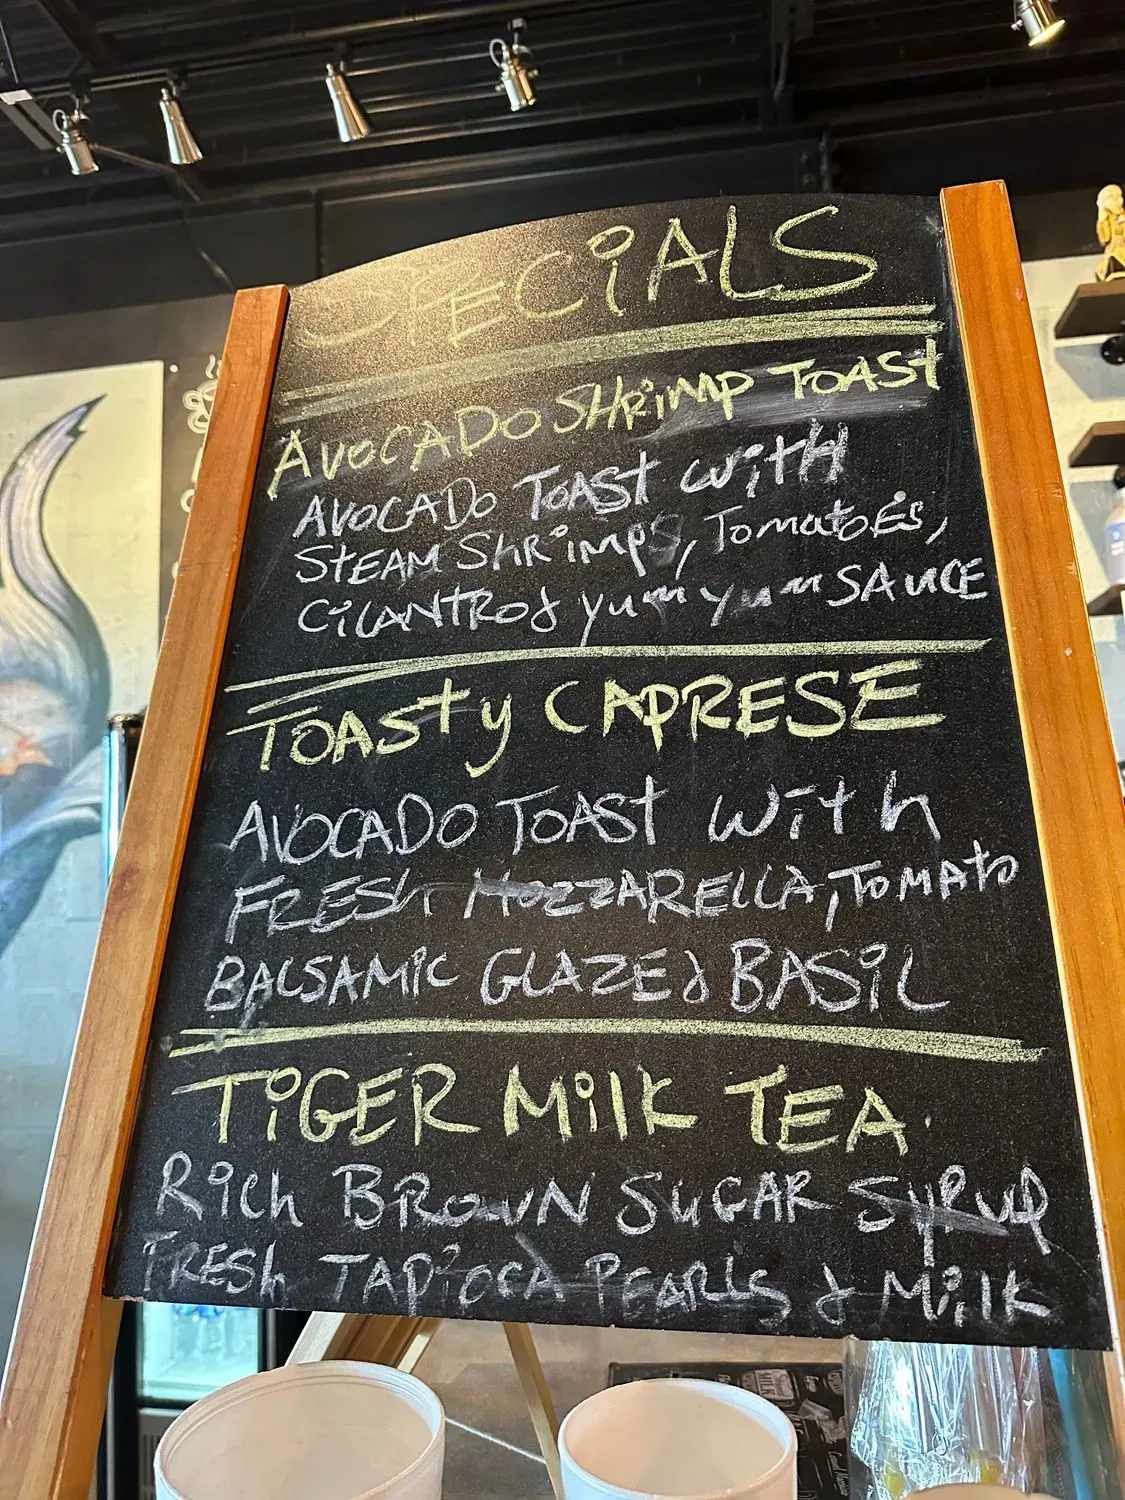 SPECiALS
AVOCADO SHRiMP TOAST
AVOCADO TOAST WiTH
STEAM SHRiMPS, TomatoEs,
CiLANTRO & yum yum SAUCE
TOASTy CAPRESE
AVOCADO TOAST With
FRESh MOZZARELLA, TOMATO
BALSAMiC GLAZE & BASiL
TiGER MilK TEA
Rich BROWN SUGAR SYRUP
FRESh TAPiOCA PEARLS & MilK